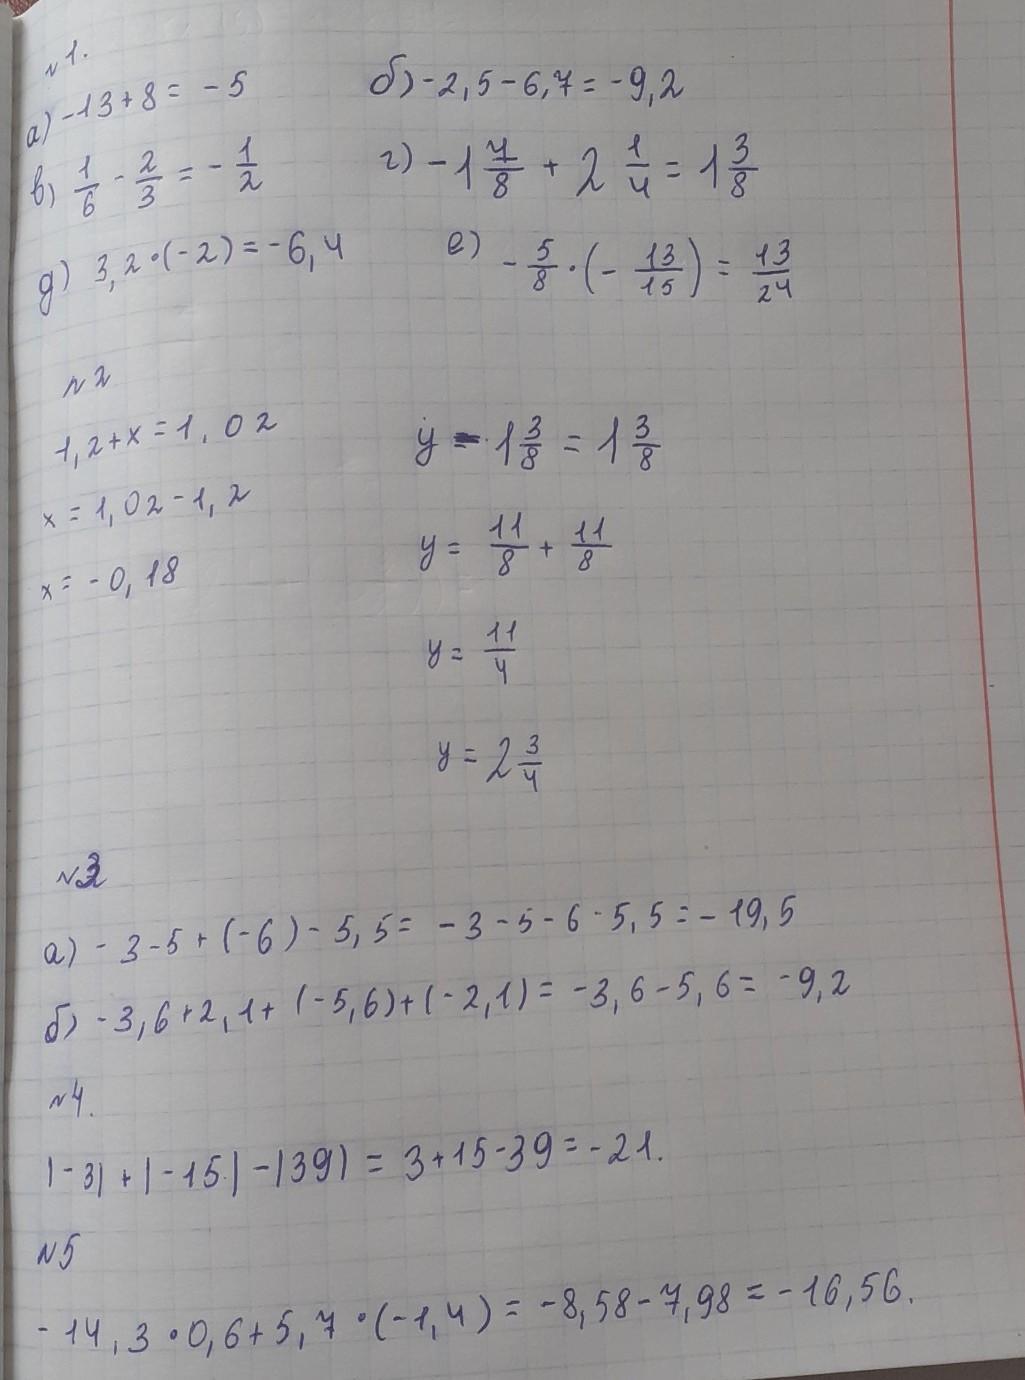 №1.
а) -13+8 = -5 б) -2,5-6,7 = -9,2
в) 1/6 - 2/3 = -1/2 г) -1 7/8 + 2 1/4 = 1 3/8
д) 3,2·(-2) = -6,4 е) -5/8·(-13/15) = 13/24
№2
1,2+x = 1,02 y - 1 3/8 = 1 3/8
x = 1,02-1,2 y = 11/8 + 11/8
x = -0,18 y = 11/4
y = 2 3/4
№3
а) -3-5+(-6)-5,5 = -3-5-6-5,5 = -19,5
б) -3,6+2,1+(-5,6)+(-2,1) = -3,6-5,6 = -9,2
№4.
|-3|+|-15|-|39| = 3+15-39 = -21.
№5
-14,3·0,6+5,7·(-1,4) = -8,58-7,98 = -16,56.